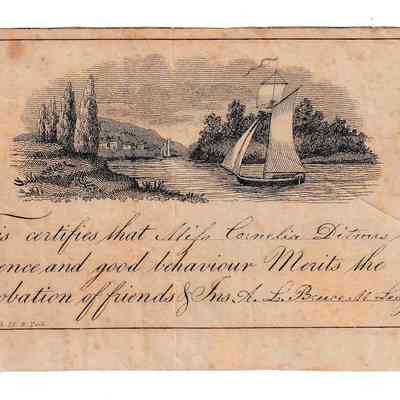 is certifies that Miss Cornelia Ditmas
ence and good behaviour Merits the
obation of friends & Ins A. L. Bruce